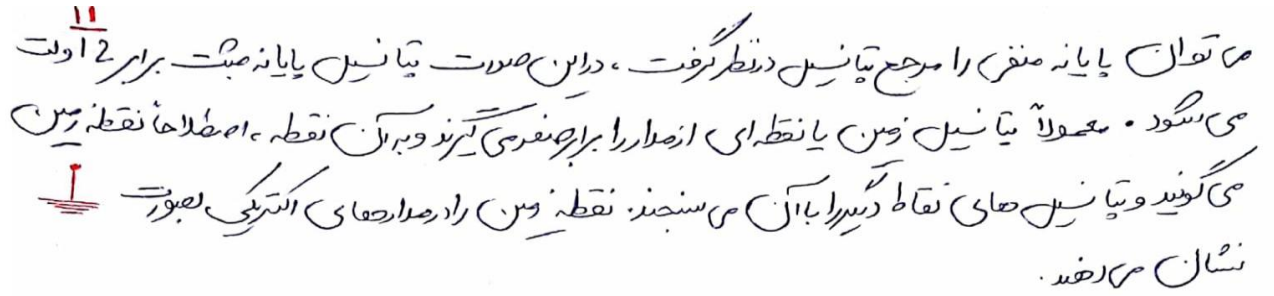 ۱۱
می توان پایانه منفی را مرجع پتانسیل درنظر گرفت ، دراین صورت پتانسیل پایانه مثبت برابر 12 ولت
می شود . معمولاً پتانسیل زمین یا نقطه ای از مدار را برابر صفر می گیرند و به آن نقطه ، اصطلاحاً نقطه زمین
می گویند و پتانسیل های نقاط دیگر را با آن می سنجند. نقطه زمین را در مدارهای الکتریکی بصورت
نشان می دهند .